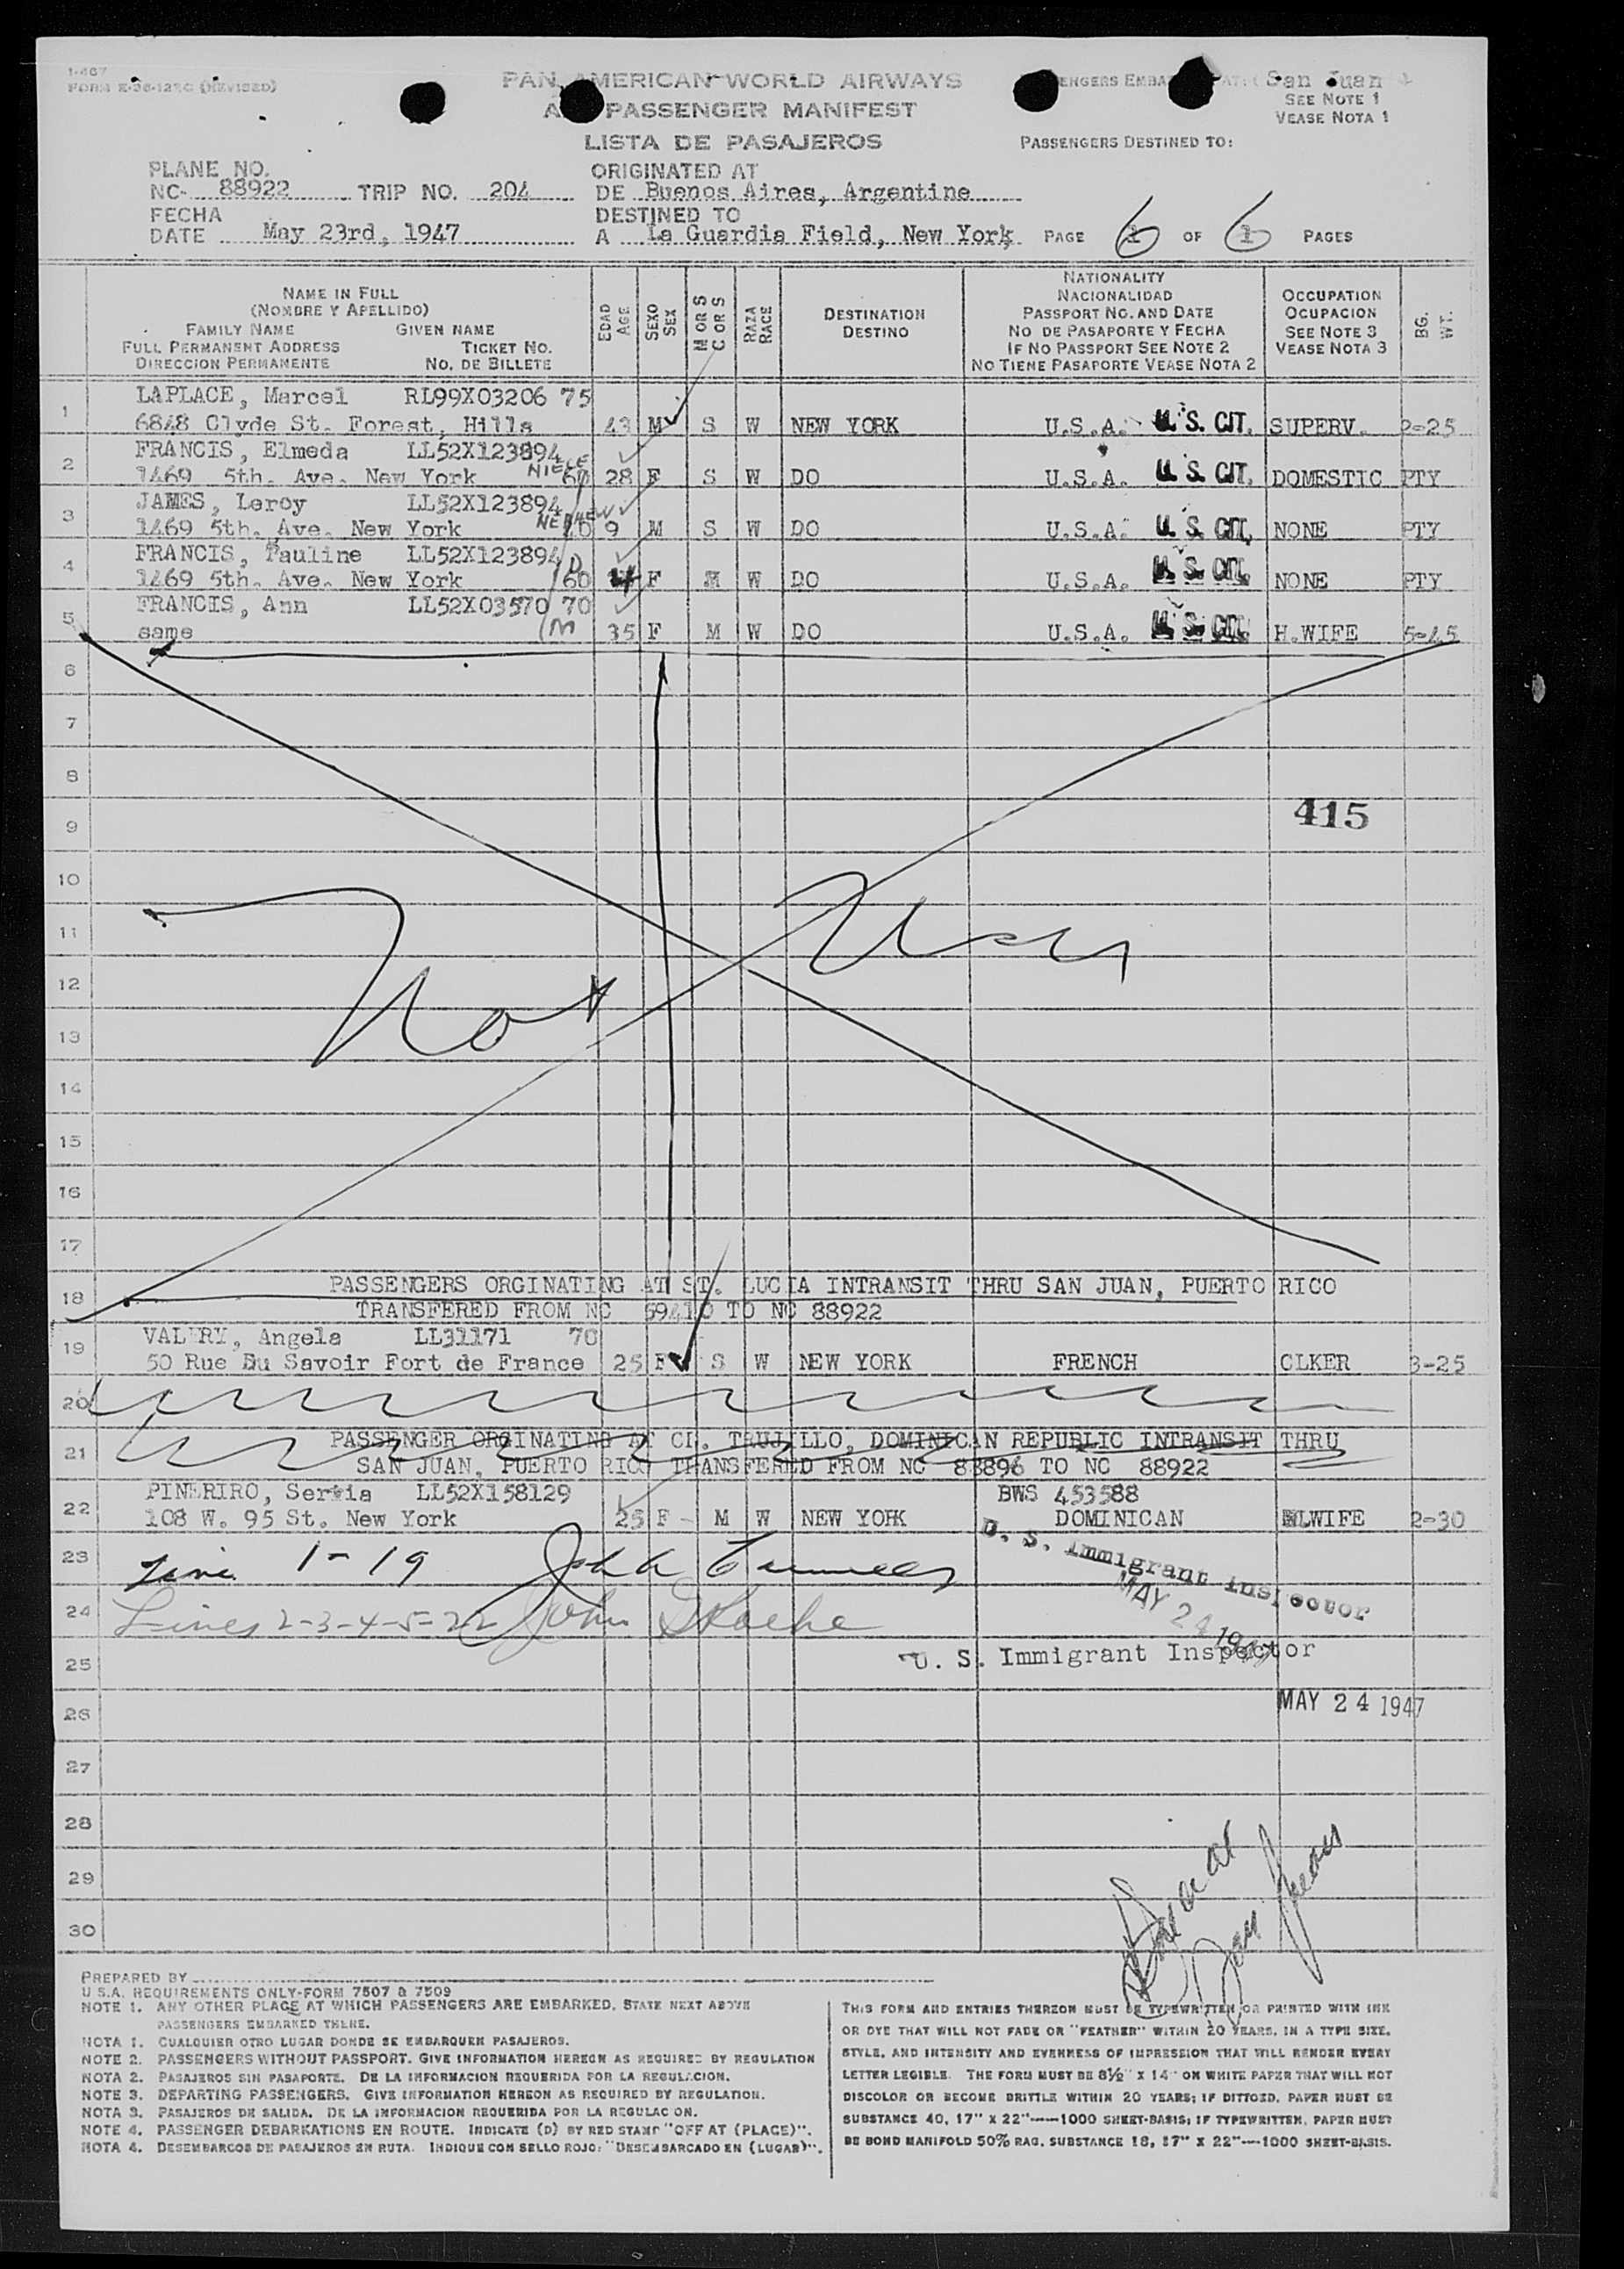 1-467
FORM E-36-127C (REVISED)
PAN AMERICAN WORLD AIRWAYS
PASSENGER MANIFEST
LISTA DE PASAJEROS
San Juan
SEE NOTE 1
VEASE NOTA 1
PASSENGERS DESTINED TO:
PLANE NO.
NC- 88922 TRIP NO. 204
ORIGINATED AT
DE Buenos Aires, Argentine
FECHA
DATE May 23rd, 1947
DESTINED TO
A La Guardia Field, New York PAGE 6 OF 6 PAGES
NAME IN FULL
(NOMBRE Y APELLIDO)
FAMILY NAME GIVEN NAME
FULL PERMANENT ADDRESS TICKET NO.
DIRECCION PERMANENTE NO. DE BILLETE
EDAD AGE
SEXO SEX
M OR S C OR S
RAZA RACE
DESTINATION
DESTINO
NATIONALITY
NACIONALIDAD
PASSPORT NO. AND DATE
NO DE PASAPORTE Y FECHA
IF NO PASSPORT SEE NOTE 2
NO TIENE PASAPORTE VEASE NOTA 2
OCCUPATION
OCUPACION
SEE NOTE 3
VEASE NOTA 3
BG. WT.
LAPLACE, Marcel RL99X03206 75
1 6848 Clyde St. Forest, Hills 43 M S W NEW YORK U.S.A. U. S. CIT. SUPERV. 2-25
FRANCIS, Elmeda LL52X123894
2 1469 5th. Ave. New York NIECE 60 28 F S W DO U.S.A. U. S. CIT. DOMESTIC PTY
JAMES, Leroy LL52X123894
3 1469 5th. Ave. New York NEPHEW 9 M S W DO U.S.A. U. S. CIT. NONE PTY
FRANCIS, Pauline LL52X123894 D
4 1469 5th. Ave. New York 60 F M W DO U.S.A. U. S. CIT. NONE PTY
FRANCIS, Ann LL52X03570 70
5 same M 35 F M W DO U.S.A. U. S. CIT. H.WIFE 5-45
6
7
8
9 415
10
11
12
Not Used
13
14
15
16
17
PASSENGERS ORGINATING AT ST. LUCIA INTRANSIT THRU SAN JUAN, PUERTO RICO
18 TRANSFERED FROM NC TO NC 88922
VALERY, Angela LL31171 70
19 50 Rue Du Savoir Fort de France 25 F S W NEW YORK FRENCH CLKER 3-25
20
PASSENGER ORGINATING AT CD. TRUJILLO, DOMINICAN REPUBLIC INTRANSIT THRU
21 SAN JUAN, PUERTO RICO TRANSFERED FROM NC 88896 TO NC 88922
PINERIRO, LL52X158129 BWS 453588
22 108 W. 95 St. New York 25 F M W NEW YORK DOMINICAN H.WIFE 2-30
23 Line 1-19 John
U. S. Immigrant Inspector
MAY 24 1947
24 Lines 2-3-4-5-22 John
25 U. S. Immigrant Inspector
26 MAY 24 1947
27
28
29
30
San Juan
PREPARED BY
U.S.A. REQUIREMENTS ONLY-FORM 7507 & 7509
NOTE 1. ANY OTHER PLACE AT WHICH PASSENGERS ARE EMBARKED, STATE NEXT ABOVE
PASSENGERS EMBARKED THENE.
NOTA 1. CUALQUIER OTRO LUGAR DONDE SE EMBARQUEN PASAJEROS.
NOTE 2. PASSENGERS WITHOUT PASSPORT. GIVE INFORMATION HEREON AS REQUIRED BY REGULATION
NOTA 2. PASAJEROS SIN PASAPORTE. DE LA INFORMACION REQUERIDA POR LA REGULACION.
NOTE 3. DEPARTING PASSENGERS. GIVE INFORMATION HEREON AS REQUIRED BY REGULATION.
NOTA 3. PASAJEROS DE SALIDA. DE LA INFORMACION REQUERIDA POR LA REGULACION.
NOTE 4. PASSENGER DEBARKATIONS EN ROUTE. INDICATE (D) BY RED STAMP "OFF AT (PLACE)".
NOTA 4. DESEMBARCOS DE PASAJEROS EN RUTA. INDIQUE CON SELLO ROJO: "DESEMBARCADO EN (LUGAR)".
THIS FORM AND ENTRIES THEREON MUST BE TYPEWRITTEN OR PRINTED WITH INK
OR DYE THAT WILL NOT FADE OR "FEATHER" WITHIN 20 YEARS, IN A TYPE SIZE,
STYLE, AND INTENSITY AND EVENNESS OF IMPRESSION THAT WILL RENDER EVERY
LETTER LEGIBLE. THE FORM MUST BE 8½" X 14" ON WHITE PAPER THAT WILL NOT
DISCOLOR OR BECOME BRITTLE WITHIN 20 YEARS; IF DITTOED, PAPER MUST BE
SUBSTANCE 40, 17" X 22"----1000 SHEET-BASIS; IF TYPEWRITTEN, PAPER MUST
BE BOND MANIFOLD 50% RAG. SUBSTANCE 18, 17" X 22"----1000 SHEET-BASIS.